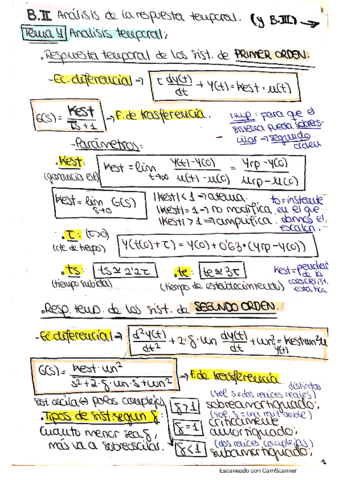 B.II Análisis de la respuesta temporal. (y B.III) →
Tema 4 Análisis temporal;
· Respuesta temporal de los sist. de PRIMER ORDEN.
- Ec. diferencial → τ dy(t)/dt + y(t) = Kest · u(t)
G(s) = Kest / τs+1 → F. de trasferencia.
imp: para que el sistema pueda sobreoscilar → segundo orden
- Parámetros:
· Kest (ganancia est.) Kest = lim t→∞ y(t)-y(0) / u(t)-u(0) = yrp-y(0) / urp-u(0)
Kest = lim s→0 G(s)
|Kest| < 1 → atenua.
|Kest| = 1 → no modifica,
|Kest| > 1 → amplifica.
to = instante en el que damos el escalón.
· τ: (τ>0) (cte de tiempo) y(t(0)+τ) = y(0) + 0'63·(yrp-y(0))
· ts: ts ≃ 2'2τ (tiempo subida)
· te: te ≃ 3τ (tiempo de establecimiento)
Kest = pendiente de la caracterist. estática
· Resp. temp. de los sist. de SEGUNDO ORDEN.
- Ec. diferencial → d²y(t)/dt² + 2·ζ·ωn dy(t)/dt + ωn² y(t) = Kest ωn² u
G(s) = Kest·ωn² / s²+2·ζ·ωn·s+ωn² → F. de trasferencia
sist oscila (⇒ polos complejos)
· Tipos de sist. según ζ:
Cuanto menor sea ζ,
más va a sobreoscilar.
(sol. s = dos raíces reales distintas)
ζ>1 sobreamortiguado;
(sol. s = una raíz doble)
ζ=1 críticamente amortiguado;
(dos raíces complejas)
ζ<1 subamortiguado;
1
Escaneado con CamScanner